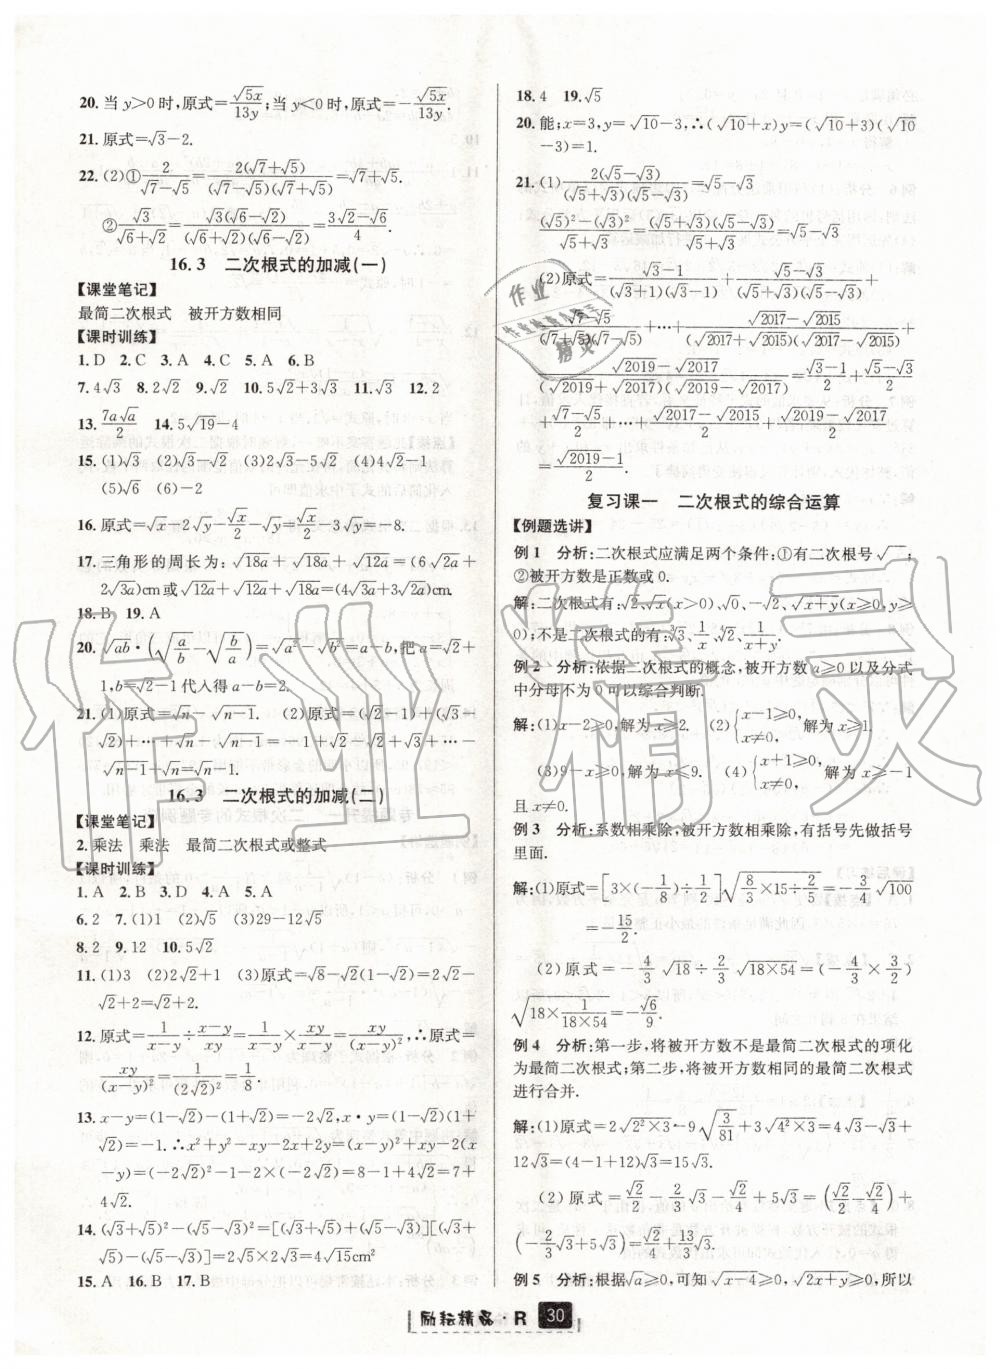 20. 当 y>0 时,原式=√5x/13y;当 y<0 时,原式=-√5x/13y.
21. 原式=√3-2.
22. (2)①2/(√7-√5)=2(√7+√5)/((√7-√5)(√7+√5))=√7+√5.
②√3/(√6+√2)=√3(√6-√2)/((√6+√2)(√6-√2))=(3√2-√6)/4.
16.3 二次根式的加减(一)
【课堂笔记】
最简二次根式 被开方数相同
【课时训练】
1. D 2. C 3. A 4. C 5. A 6. B
7. 4√3 8. 2√2 9. √2 10. 5√2+3√3 11. √3 12. 2
13. 7a√a/2 14. 5√19-4
15. (1)√3 (2)√3-√2 (3)2√3-5√2 (4)4√2-1
(5)√6 (6)-2
16. 原式=√x-2√y-√x/2-√x/2-√y=-3√y=-8.
17. 三角形的周长为:√18a+√12a+√18a=(6√2a
+2√3a)cm或√12a+√12a+√18a=(4√3a+3√2a)cm.
18. B 19. A
20. √ab·(√(a/b)-√(b/a))=√a²-√b²=a-b,把 a=√2+
1,b=√2-1代入得 a-b=2.
21. (1)原式=√n-√n-1. (2)原式=(√2-1)+(√3-
√2)+…+√n-√n-1=-1+√2-√2+√3+…-
√n-1+√n=√n-1.
16.3 二次根式的加减(二)
【课堂笔记】
2. 乘法 乘法 最简二次根式或整式
【课时训练】
1. A 2. B 3. D 4. A 5. A
6. 2 7. (1)1 (2)√5 (3)29-12√5
8. 2 9. 12 10. 5√2
11. (1)3 (2)2√2+1 (3)原式=√8-√2(1-√2)=2√2-
√2+2=√2+2.
12. 原式=1/(x-y)÷(x-y)/xy=1/(x-y)×xy/(x-y)=xy/(x-y)²,∴原式=
xy/(x-y)²=1/(2√2)²=1/8.
13. x-y=(1-√2)-(1+√2)=-2√2,x·y=(1-√2)(1+
√2)=-1.∴x²+y²-xy-2x+2y=(x-y)²+xy-2(x
-y)=(-2√2)²-1-2×(-2√2)=8-1+4√2=7+
4√2.
14. (√3+√5)²-(√5-√3)²=[(√3+√5)+(√5-√3)][(√3
+√5)-(√5-√3)]=2√5×2√3=4√15cm²
15. A 16. B 17. B
18. 4 19. √5
20. 能;x=3,y=√10-3,∴(√10+x)y=(√10+3)(√10
-3)=1.
21. (1)2(√5-√3)/((√5+√3)(√5-√3))=√5-√3
((√5)²-(√3)²)/(√5+√3)=(√5+√3)(√5-√3)/(√5+√3)=√5-√3
(2)原式=(√3-1)/((√3+1)(√3-1))+(√5-√3)/((√5+√3)(√5-√3))+
(√7-√5)/((√7+√5)(√7-√5))+…+(√2017-√2015)/((√2017+√2015)(√2017-√2015))+
(√2019-√2017)/((√2019+√2017)(√2019-√2017))=(√3-1)/2+(√5-√3)/2
+(√7-√5)/2+…+(√2017-√2015)/2+(√2019-√2017)/2
=(√2019-1)/2.
复习课一 二次根式的综合运算
【例题选讲】
例 1 分析:二次根式应满足两个条件:①有二次根号√ ;
②被开方数是正数或 0.
解:二次根式有:√2、√x(x>0)、√0、-√2、√x+y(x≥0,y≥
0);不是二次根式的有:∛3、1/x、∜2、1/(x+y).
例 2 分析:依据二次根式的概念,被开方数 a≥0 以及分式
中分母不为 0 可以综合判断.
解:(1)x-2≥0,解为 x≥2. (2){x-1≥0, x≠0, 解为 x≥1.
(3)9-x≥0,解为 x≤9. (4){x+1≥0, x≠0, 解为 x≥-1
且 x≠0.
例 3 分析:系数相乘除,被开方数相乘除,有括号先做括号
里面.
解:(1)原式=[3×(-1/8)÷1/2]√(8/3×15/2÷2/5)=-3/4√100
=-15/2.
(2)原式=-4/3√18÷2/3√18×54=(-4/3×3/2)
√(18×1/(18×54))=-√6/9.
例 4 分析:第一步,将被开方数不是最简二次根式的项化
为最简二次根式;第二步,将被开方数相同的最简二次根式
进行合并.
解:(1)原式=2√2²×3-9√(3/81)+3√4²×3=4√3-√3+
12√3=(4-1+12)√3=15√3.
(2)原式=√2/2-2/3√3-√2/4+5√3=(√2/2-√2/4)+
(-2/3√3+5√3)=√2/4+13/3√3.
例 5 分析:根据√a≥0,可知√x-4≥0,√2x+y≥0,所以
励耘精品·R 30
作业精灵